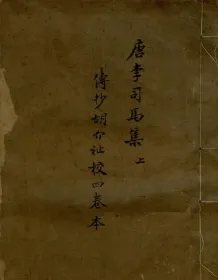 唐李司馬集 上
傳抄胡介祉校四卷本